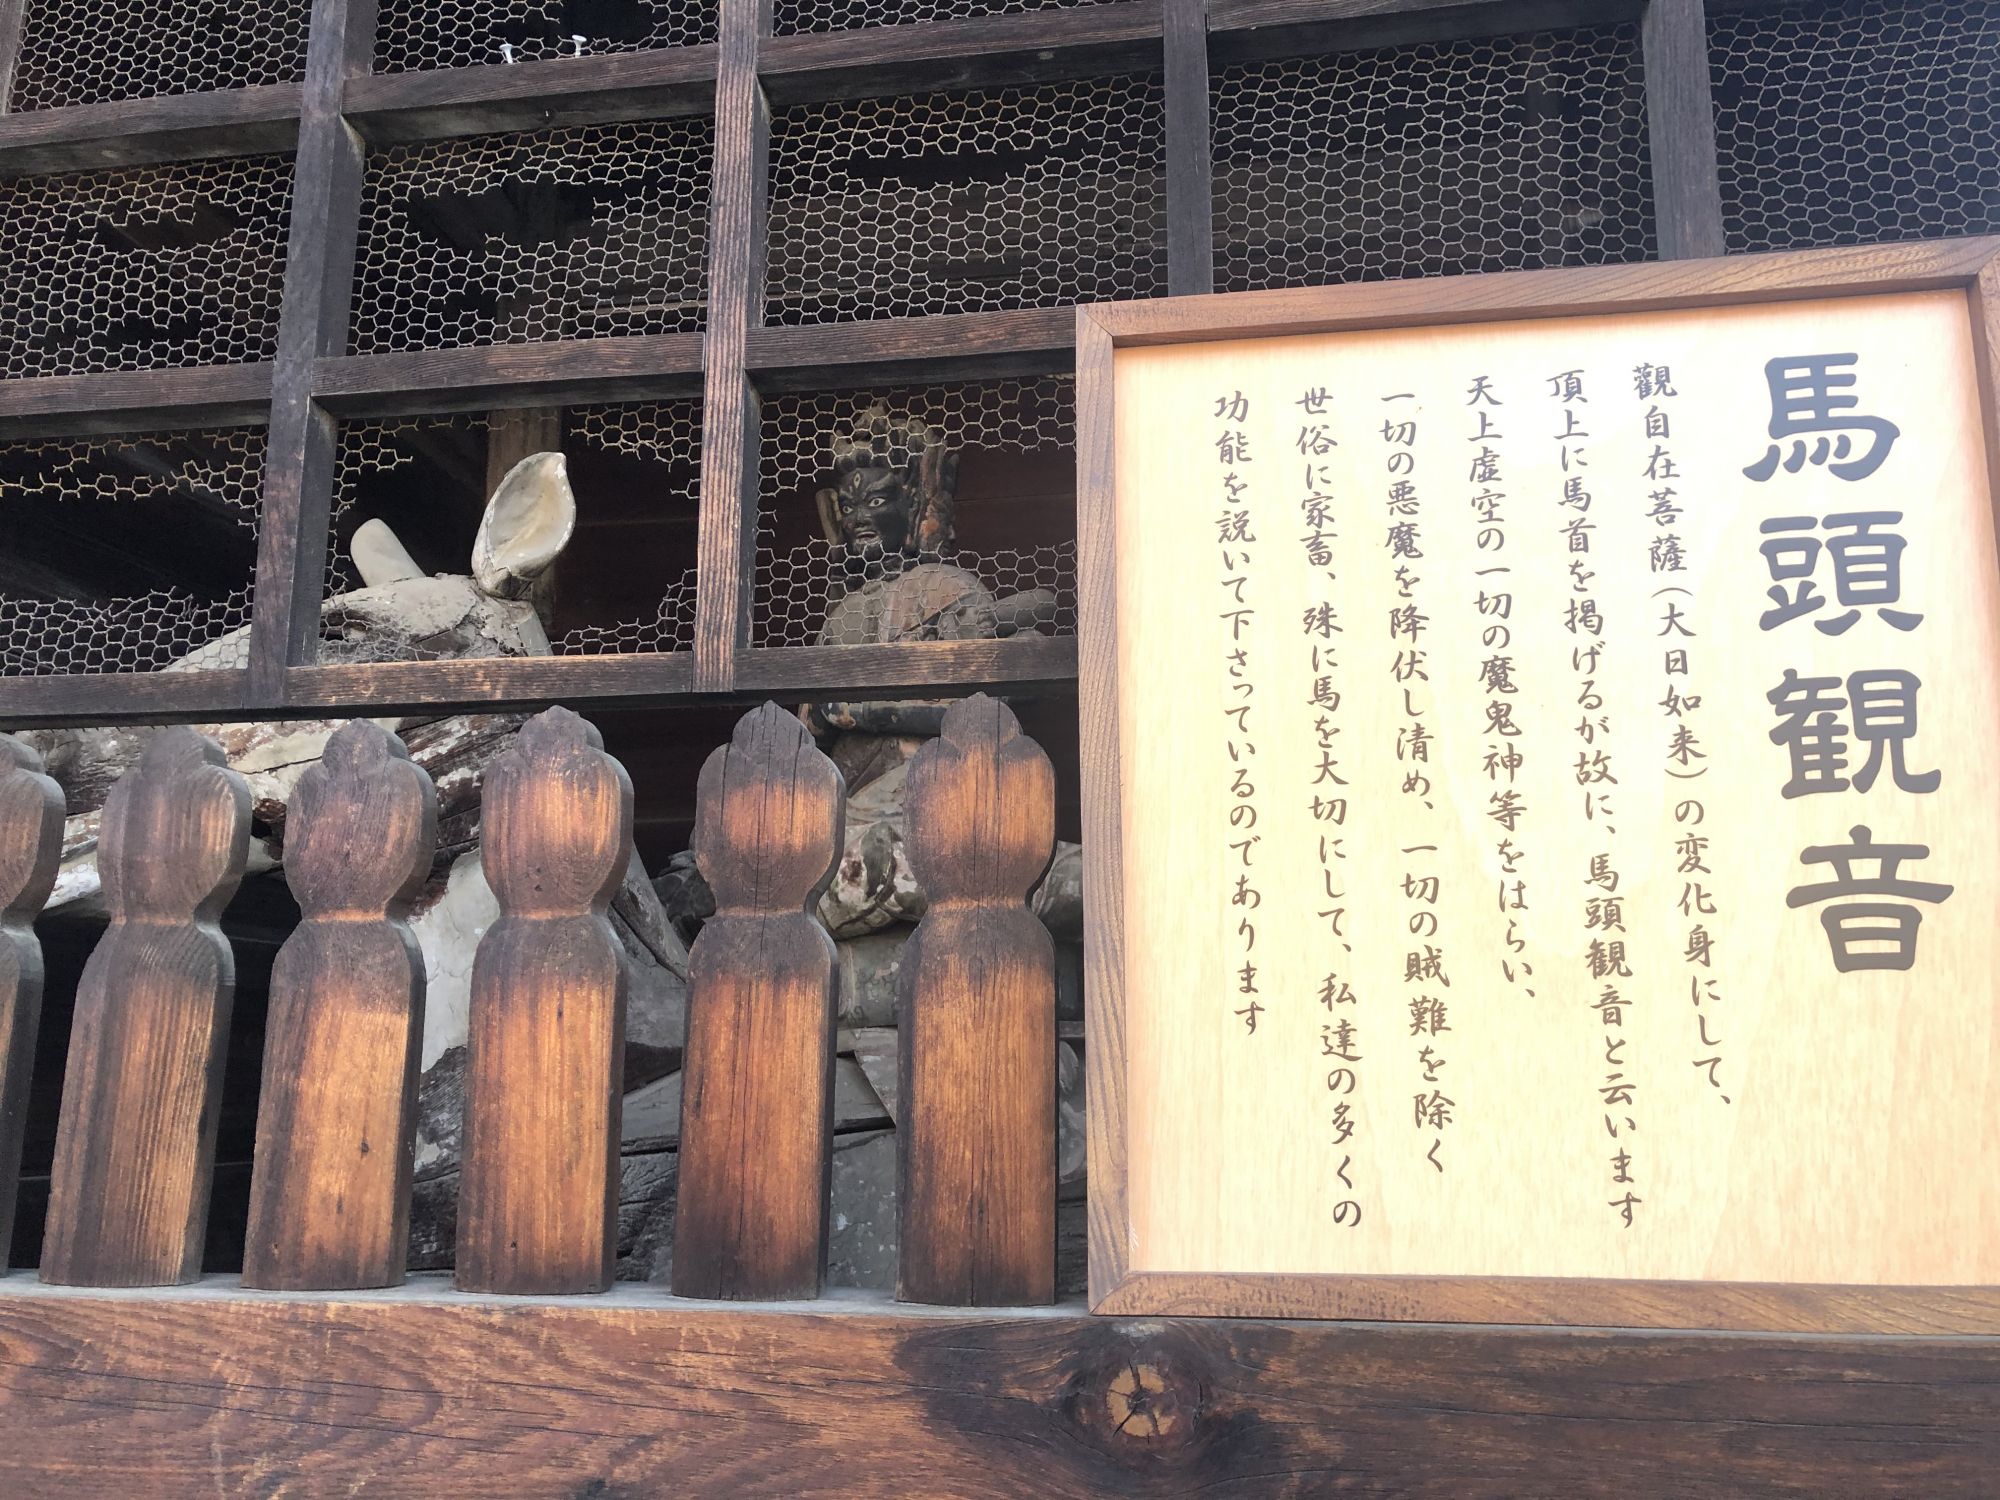 馬頭観音
觀自在菩薩(大日如来)の変化身にして、
頂上に馬首を掲げるが故に、馬頭観音と云います
天上虚空の一切の魔鬼神等をはらい、
一切の悪魔を降伏し清め、一切の賊難を除く
世俗に家畜、殊に馬を大切にして、私達の多くの
功能を説いて下さっているのであります